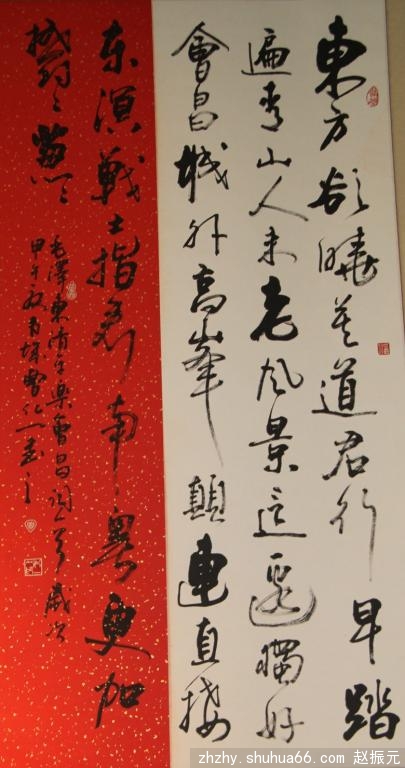 東方欲曉莫道君行早踏
遍青山人未老风景這邊獨好
會昌城外高峯顛連直接
东溟戰士指看南粤更加
鬱〻葱〻
毛澤東清平樂會昌詞一首歲次
甲午
zhzhy.shuhua66.com 赵振元